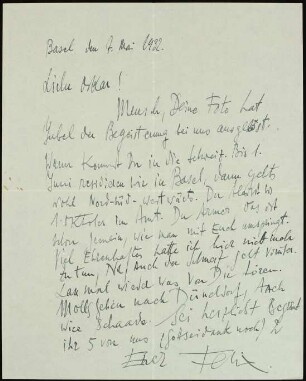 Basel den 7. Mai 1932.
Liebe Oskar!
Mensch, Deine Foto hat
Jubel der Begeisterung bei uns ausgelöst.
Wann kommst Du in die Schweiz. Bis 1.
Juni residieren wir in Basel, dann gehts
wohl Nord-Süd-Westwärts. Du bleibst
1. im Amt. Du Armer das ist
schon gemein, wie man mit Euch umspringt.
Viel Ehrenhaftes hatte ich hier nicht mehr
zu tun. Na! Auch der Schmerz geht vorüber.
Lass mal wieder was von Dir hören.
Molls gehen nach Düsseldorf, Auch
wie Schaads. Sei herzlichst gegrüsst
ihr 5 von uns (Gottseidank noch) 2
Euch